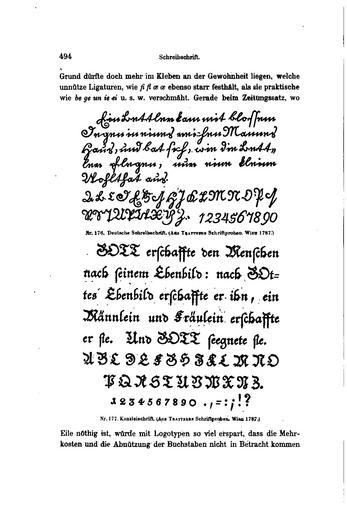 494 Schreibschrift.
Grund dürfte doch mehr im Kleben an der Gewohnheit liegen, welche
unnütze Ligaturen, wie fi fl æ œ ebenso starr festhält, als sie praktische
wie be ge un ie ei u. s. w. verschmäht. Gerade beim Zeitungssatz, wo
Ein Bettler kam mit blossem
Degen in eines reichen Mannes
Haus, und bat sich, wie die Bett-
ler pflegen, um eine kleine
Wohlthat aus
1234567890
Nr. 176. Deutsche Schreibschrift. (Aus Trattners Schriftproben. Wien 1767.)
GOTT erschaffte den Menschen
nach seinem Ebenbild: nach GOt-
tes Ebenbild erschaffte er ihn, ein
Männlein und Fräulein erschaffte
er sie. Und GOTT seegnete sie.
A B C D E F G H I K L M N O
P Q R S T U V W X Y Z.
1 2 3 4 5 6 7 8 9 0 . , = : ; ! ?
Nr. 177. Kanzleischrift. (Aus Trattners Schriftproben. Wien 1767.)
Eile nöthig ist, würde mit Logotypen so viel erspart, dass die Mehr-
kosten und die Abnützung der Buchstaben nicht in Betracht kommen